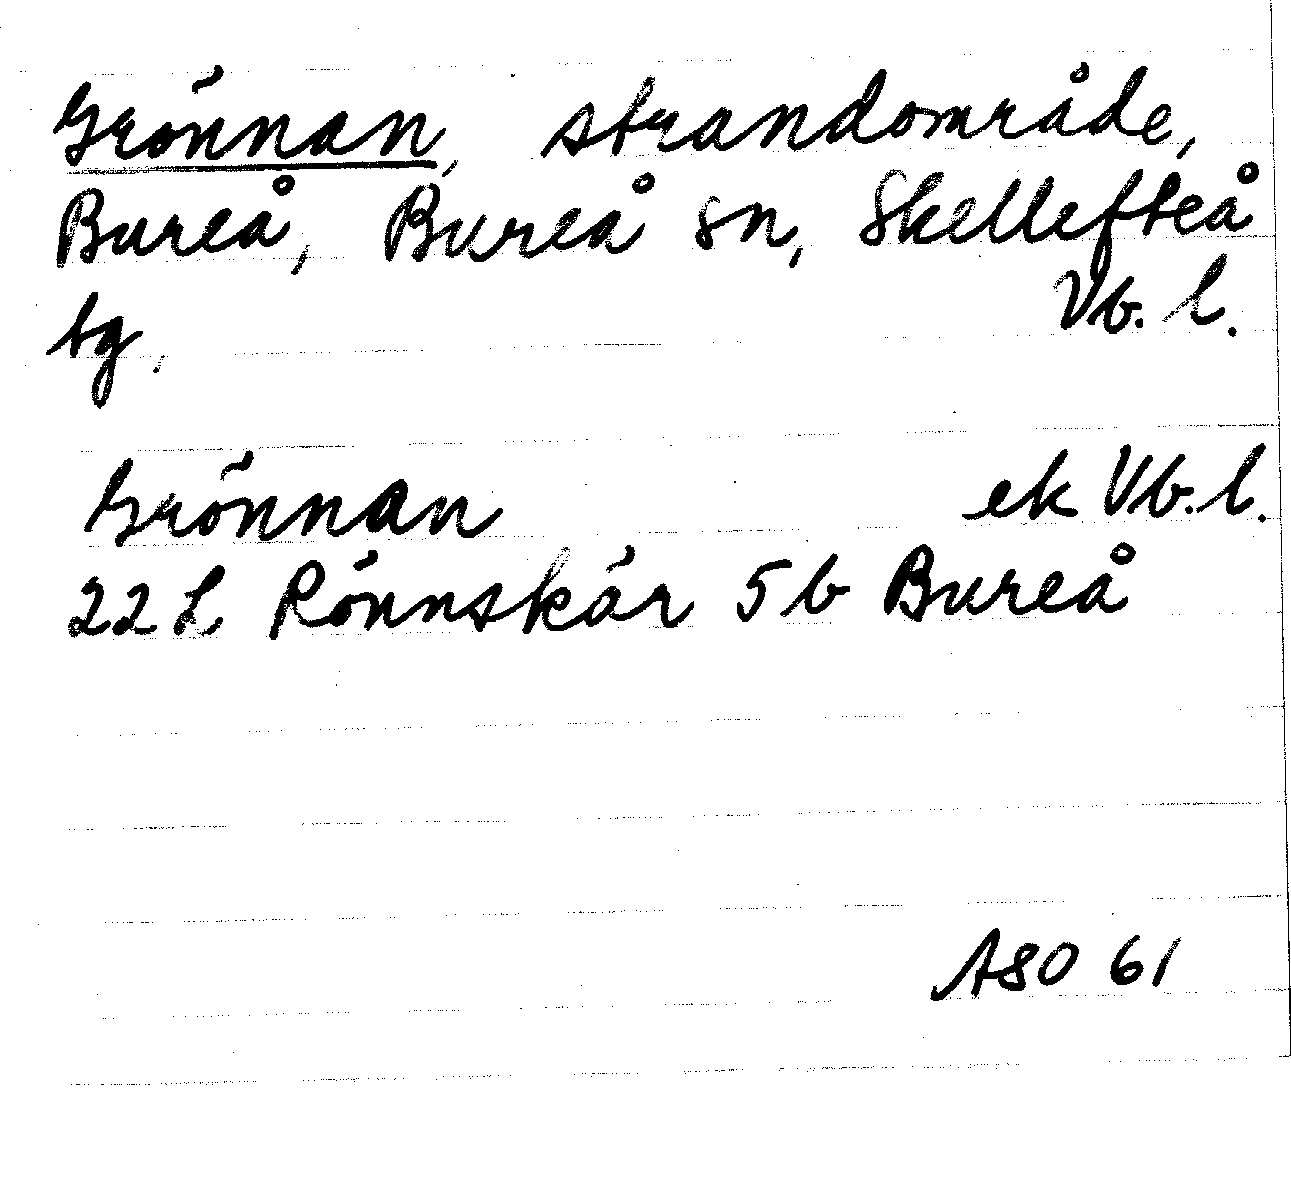 Grönnan, strandområde,
Bureå, Bureå sn, Skellefteå
tg, Vb. l.
Grönnan ek Vb. l.
22 L Rönnskär 5 b Bureå
ASO 61